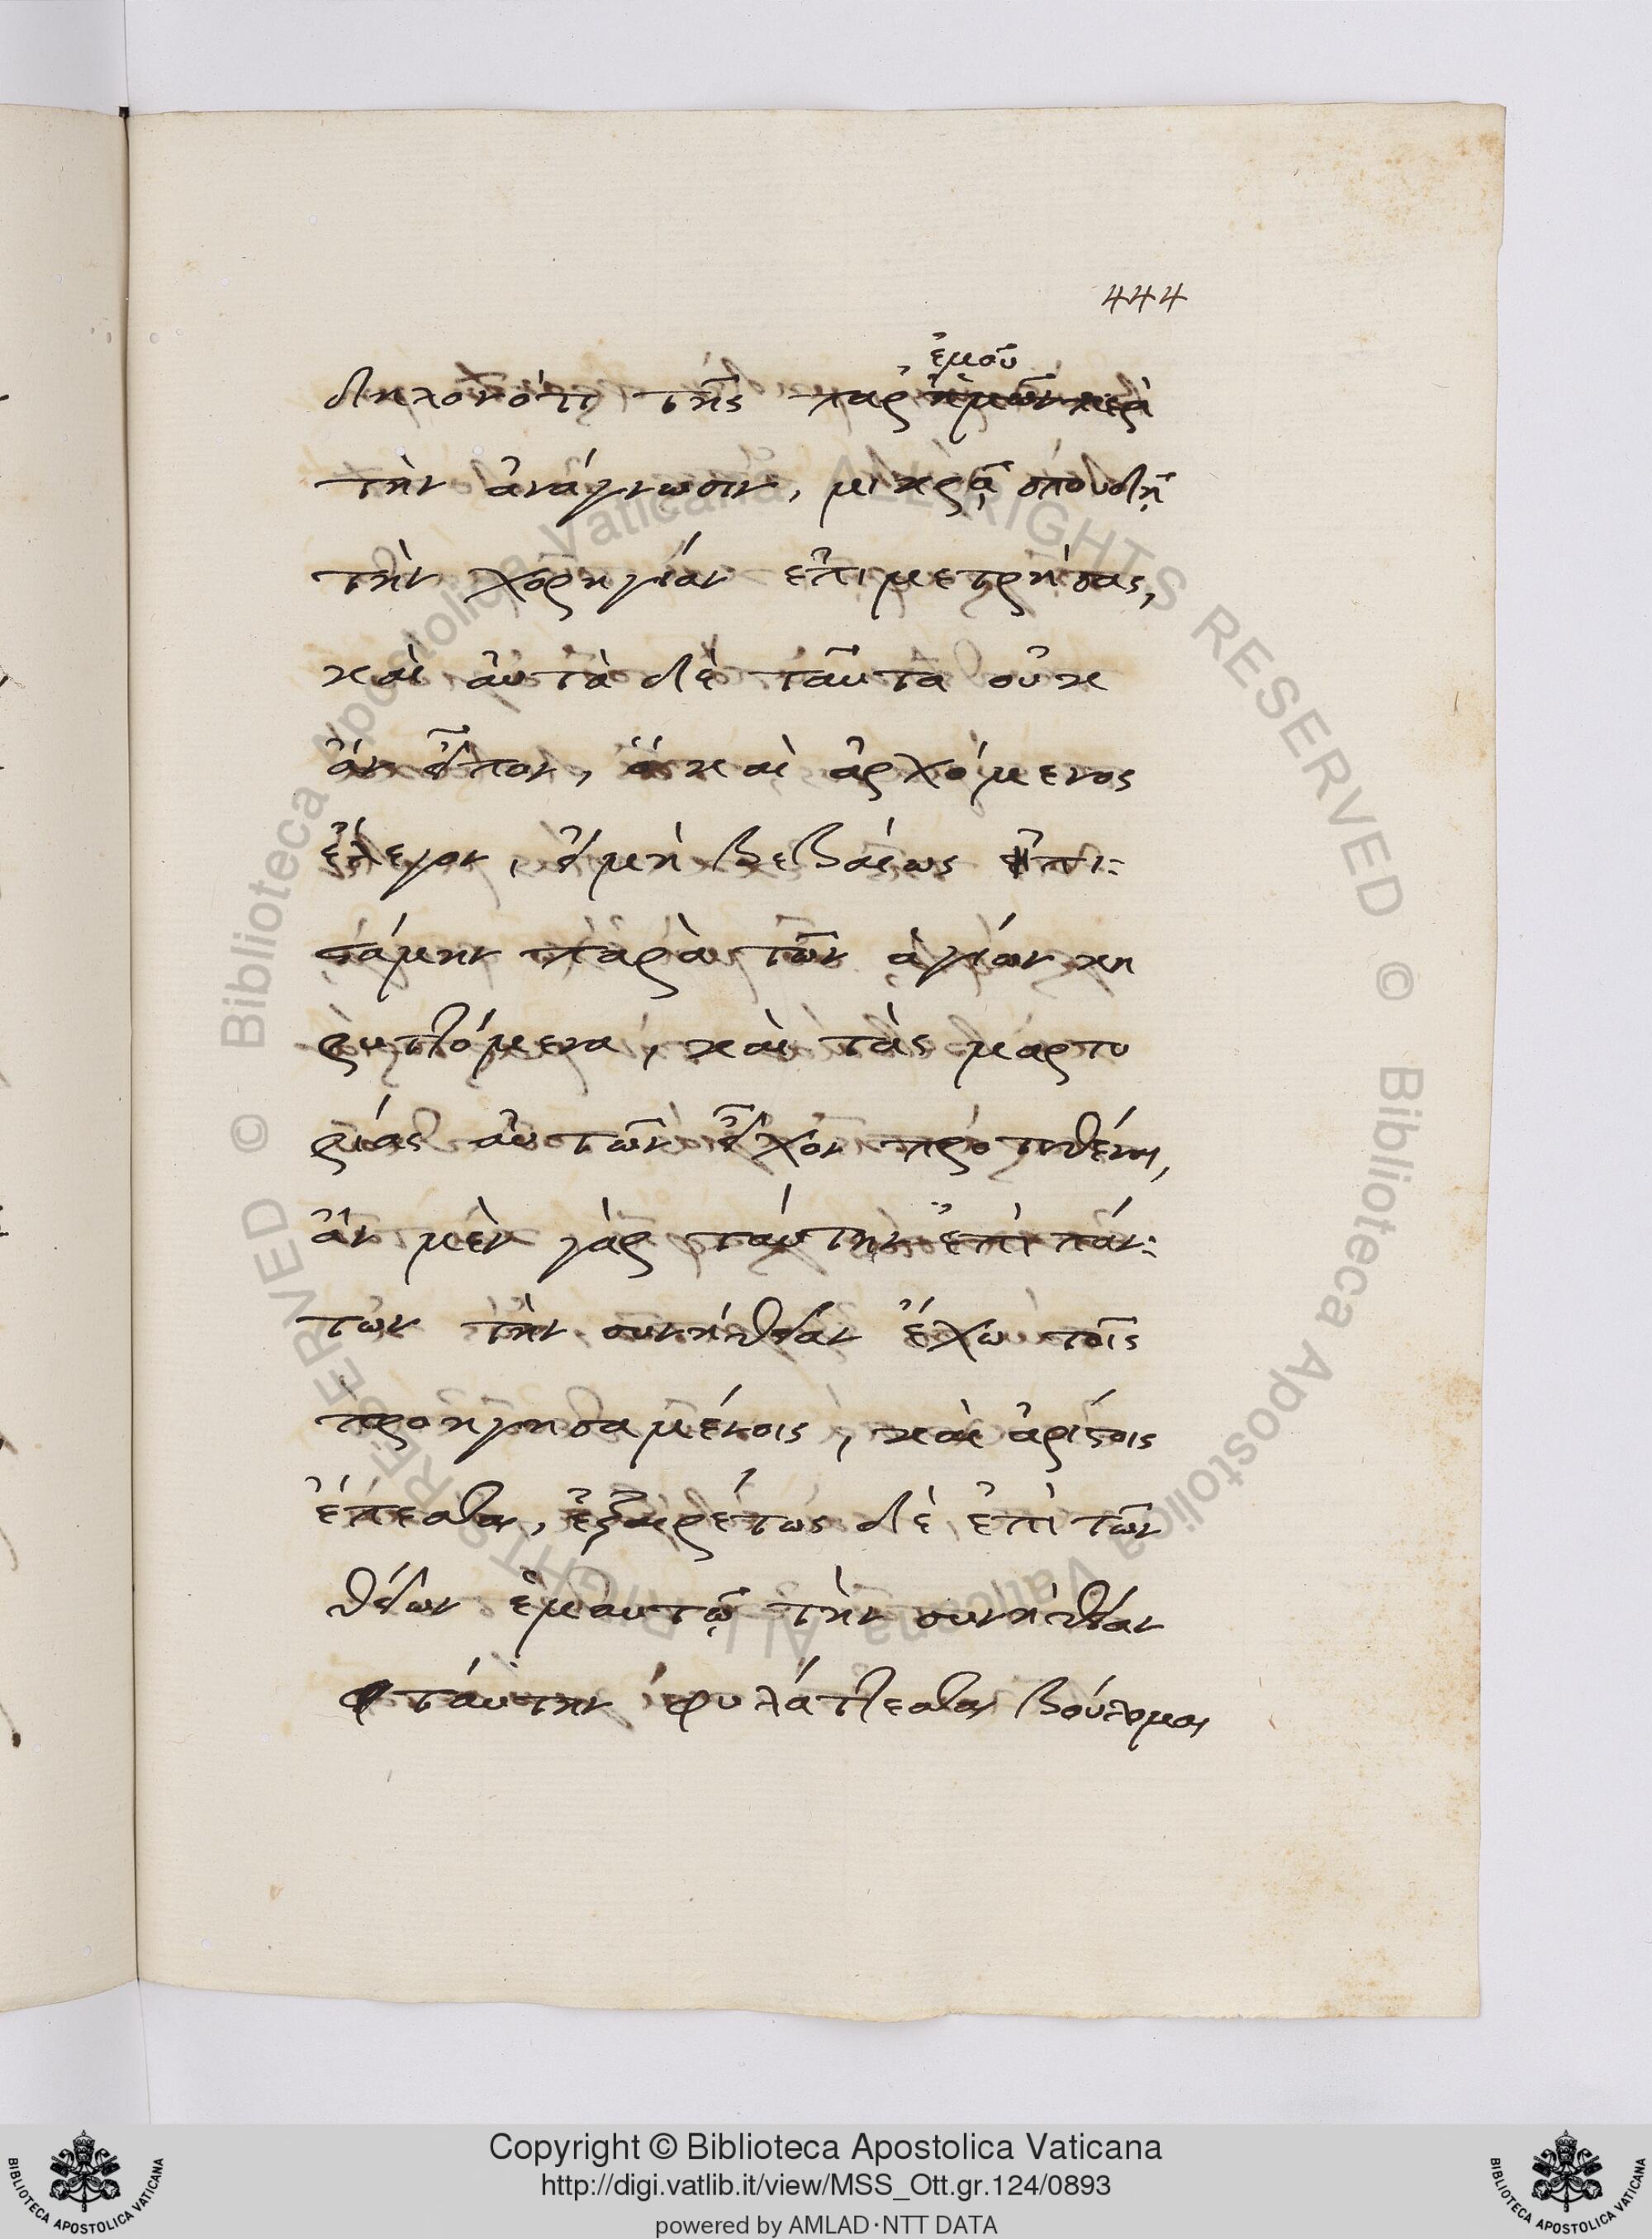 444
ἐμοῦ
δηλονότι τῆς παρ' ἡμῶν περὶ
τὴν ἀνάγνωσιν, μικρᾷ σπουδῇ
τὴν χορηγίαν ἐπιμετρήσας,
καὶ αὐτὰ δὲ ταῦτα οὐκ
ἂν εἶπον, ἃ καὶ ἀρχόμενος
ἔλεγον, εἰ μὴ βεβαίως ἠπι:
στάμην παρὰ τῶν ἁγίων κη
ρυττόμενα, καὶ τὰς μαρτυ
ρίας αὐτῶν εἶχον προτιθέναι,
ἂν μὲν γὰρ ταύτην ἐπὶ πάν:
των τὴν συνήθειαν ἔχω τοῖς
προηγησαμένοις, καὶ ἀρίστοις
ἕπεσθαι, ἐξαιρέτως δὲ ἐπὶ τῶν
θείων ἐμαυτῷ τὴν συνήθειαν
ταύτην φυλάττεσθαι βούλομαι
Copyright © Biblioteca Apostolica Vaticana
http://digi.vatlib.it/view/MSS_Ott.gr.124/0893
powered by AMLAD·NTT DATA
BIBLIOTECA APOSTOLICA VATICANA
BIBLIOTECA APOSTOLICA VATICANA
© Biblioteca Apostolica Vaticana ALL RIGHTS RESERVED © Biblioteca Apostolica Vaticana ALL RIGHTS RESERVED